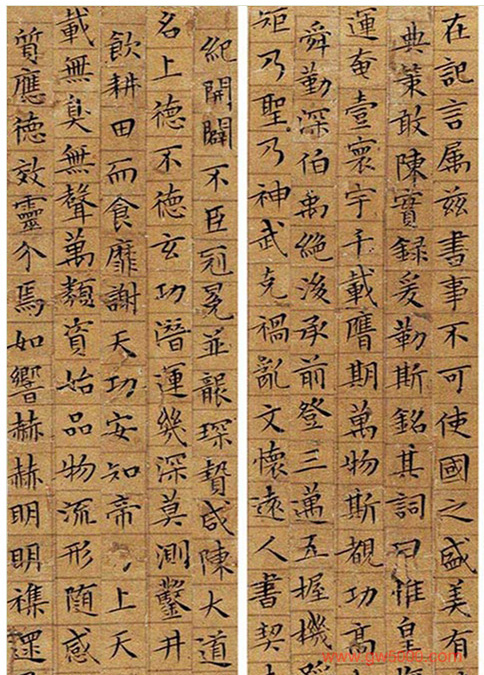 在記言属兹書事不可使國之盛美有
典策敢陳實録爰勒斯銘其詞曰惟皇撫
運奄壹寰宇千載膺期萬物斯覩功高
舜勤深伯禹絶後承前登三邁五握機蹈
矩乃聖乃神武克禍亂文懷遠人書契
紀開闢不臣冠冕並襲琛贄咸陳大道
名上德不德玄功潛運幾深莫測鑿井
飲耕田而食靡謝天功安知帝上天
載無臭無聲萬類資始品物流形隨感
質應德效靈介焉如響赫赫明明襍遝